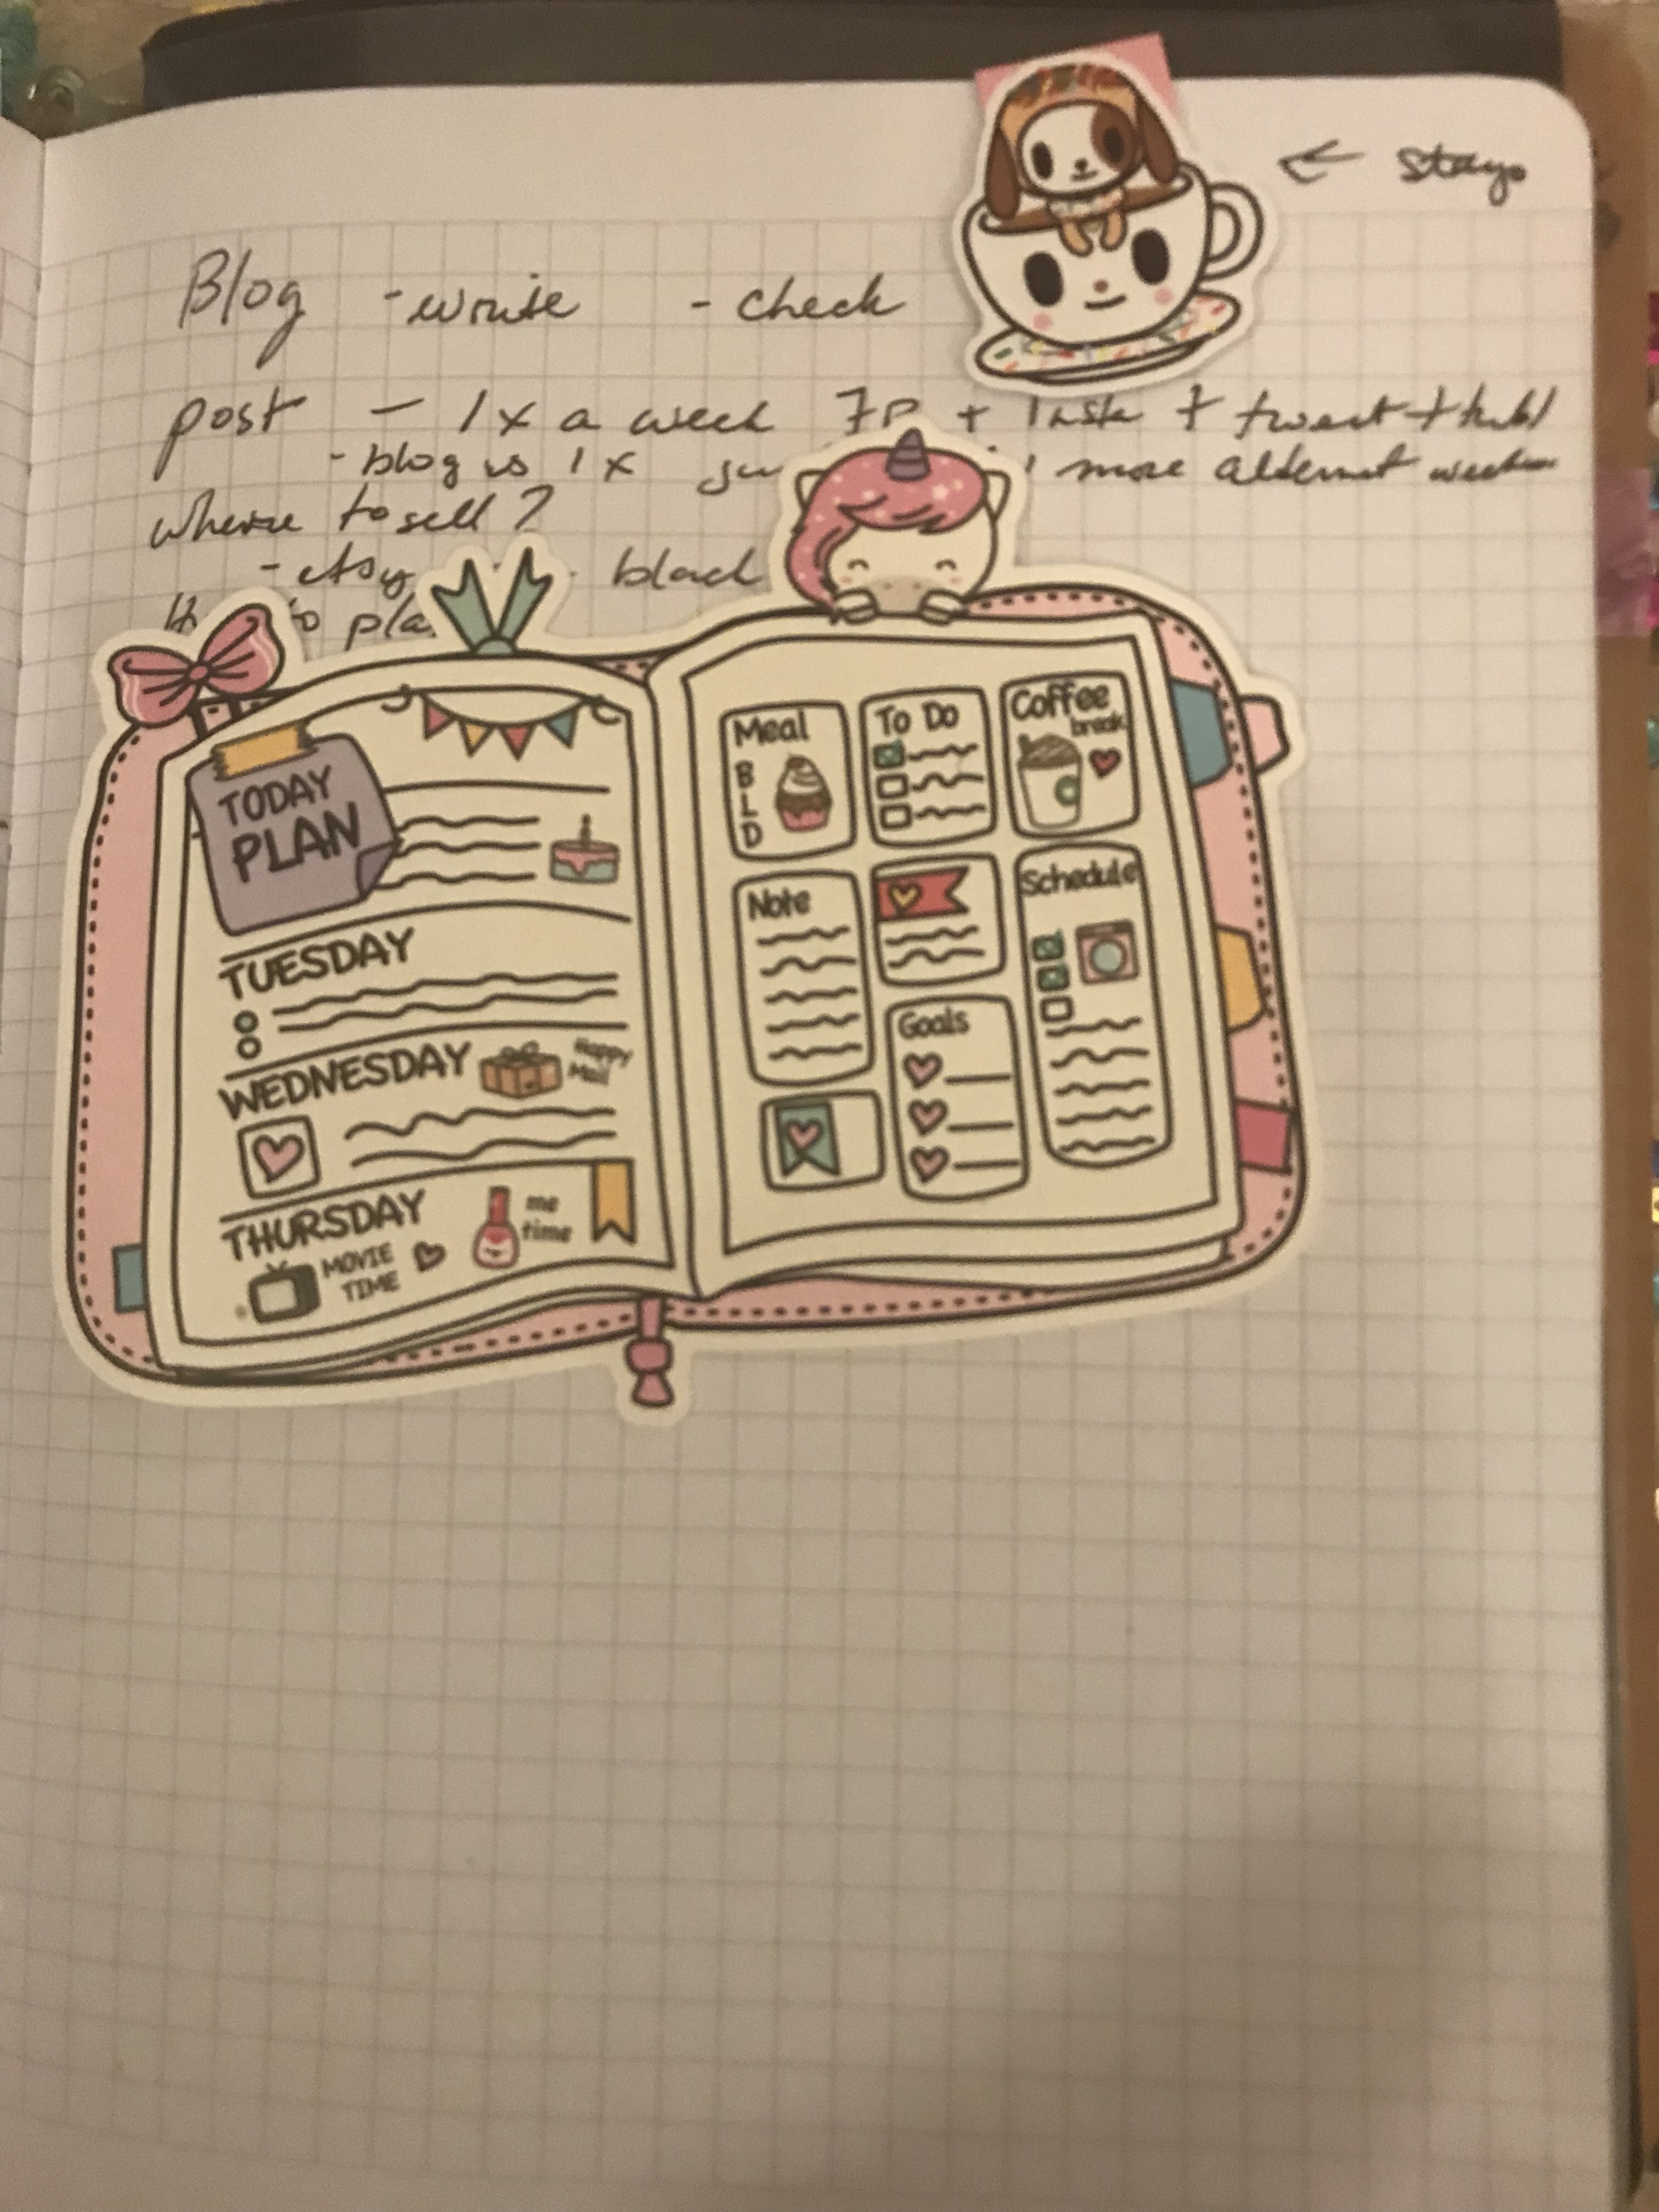 ← stays
Blog - write - check
post - 1x a week + Insta + tweet +
- blog is 1x more alternat week
where to sell?
- etsy black
to pla
TODAY
PLAN
TUESDAY
WEDNESDAY
Happy
Mail
THURSDAY
MOVIE
TIME
me
time
Meal
B
L
D
To Do
Coffee
break
Note
Schedule
Goals